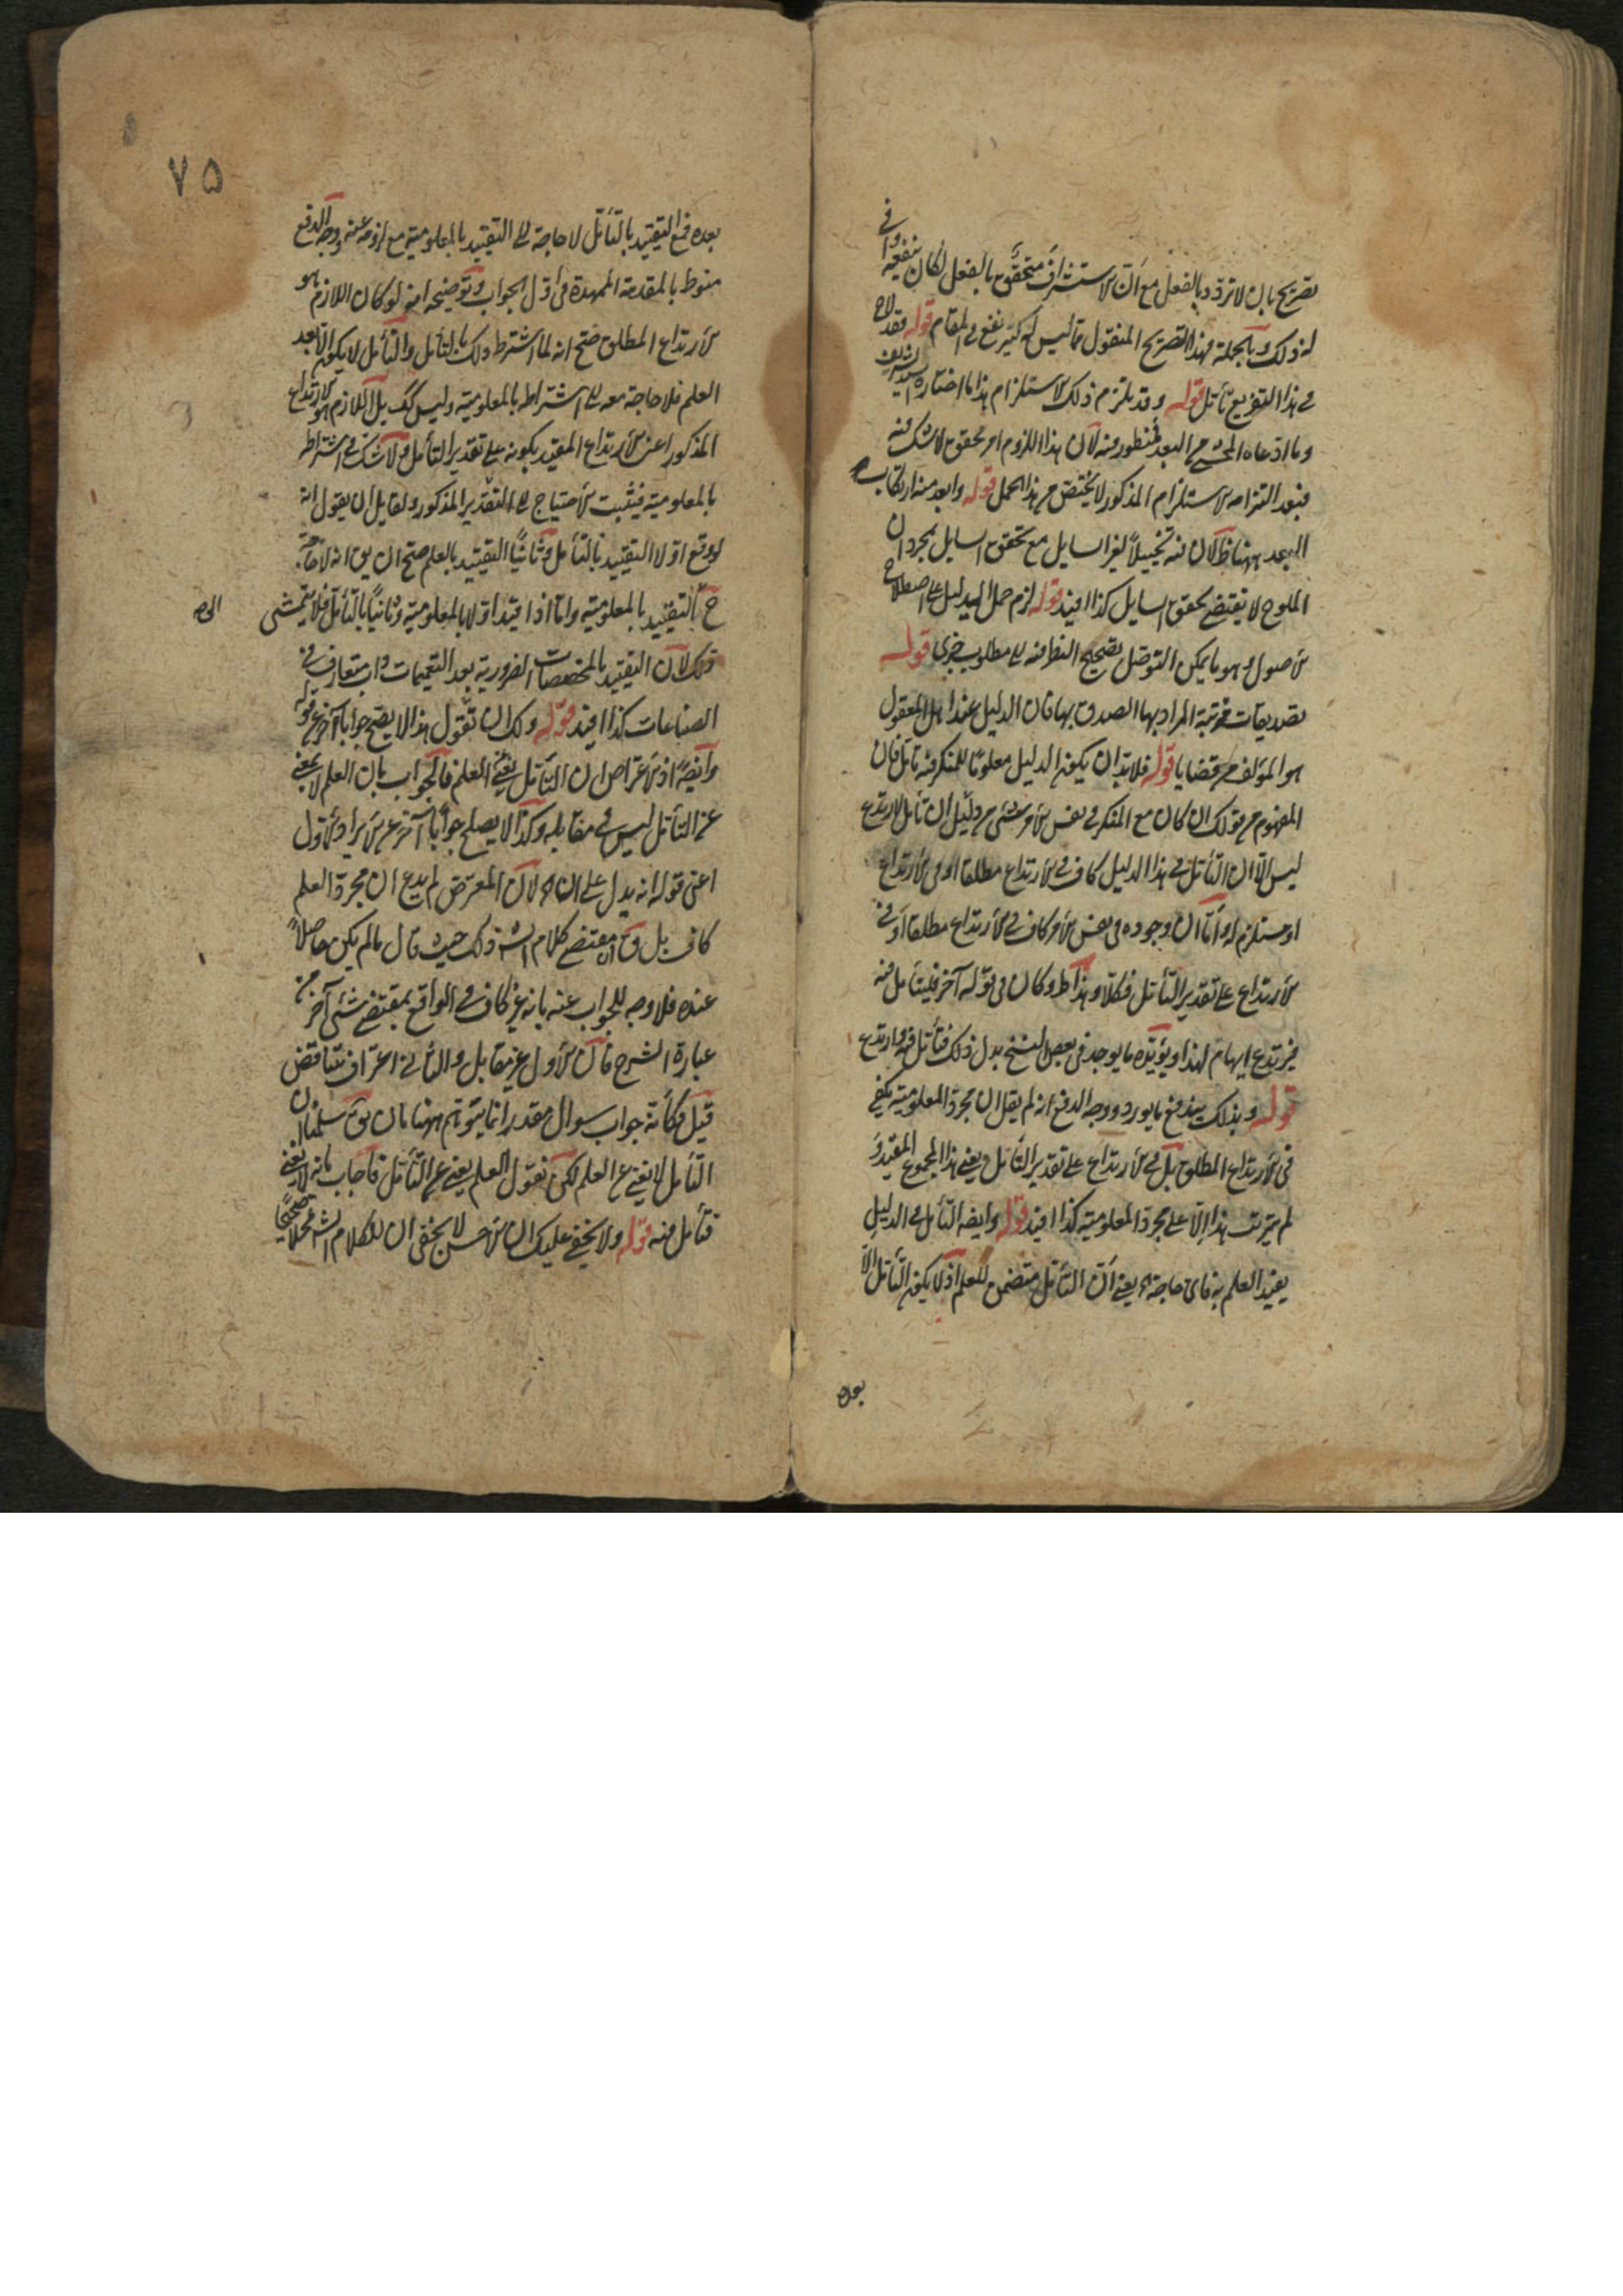 تصريح بان لا تردد بالفعل مع ان الاستشراف متحقق بالفعل لكان ينفعه وافى
له ذلك وبالجملة فهذا التصريح المنقول مما ليس له كثير نفع فى المقام قوله فقد لاح
فى هذا التفريع تأمل قوله وقد يلتزم ذلك الاستلزام هذا ما اختاره السيد الشريف
وما ادعاه المحشى من البعد فمنظور فيه لان هذا اللزوم امر محقق لا شك فيه
فبعد التزامه الاستلزام المذكور لا يختص بهذا الحمل قوله وابعد منه ارتكاب
البعد ههنا ظ لان فيه تخييلا لغير السايل مع تحقق السايل بمجرد ان
الملوح لا يقتضى تحقق السايل كذا افيد قوله لزم حمل الدليل على اصطلاح
الاصول وهو ما يمكن التوصل بصحيح النظر فيه الى مطلوب خبرى قوله
تصديقات مرتبة المراد بها المصدق بها فان الدليل عند اهل المعقول
هو المؤلف من قضايا قوله فلا بد ان يكون الدليل معلوما للمنكر فيه تامل فان
المفهوم من قولك ان كان مع المنكر فى نفس الامر شئ من دليل ان تأمل لارتدع
ليس الا ان التأمل فى هذا الدليل كاف فى الارتداع مطلقا او فى الارتداع
او مستلزم له واما ان وجوده فى نفس الامر كاف فى الارتداع مطلقا او فى
الارتداع على تقدير التأمل فكلا وهذا ظ وكان فى قوله آخر فليتأمل فيه
فيرتدع ايهام لهذا ويؤيده ما يوجد فى بعض النسخ بدل ذلك فتأمل فيه وارتدع
قوله وبذلك يندفع ما يورد ووجه الدفع انه لم يقل ان مجرد المعلومية يكفى
فى الارتداع المطلق بل فى الارتداع على تقدير التأمل ويعنى هذا المجموع المقيد و
لم يترتب هذا الا على مجرد المعلومية كذا افيد قوله وايضا التأمل فى الدليل
يفيد العلم به فاى حاجة اه يعنى ان التأمل متضمن للعلم اذ لا يكون التأمل الا
بعده
٧٥
بعده فمع التقييد بالتأمل لا حاجة الى التقييد بالمعلومية مع لزومه عنه ووجه الدفع
منوط بالمقدمة الممهدة فى اول الجواب وتوضيحه انه لو كان اللازم هو
الارتداع المطلق صح انه لما اشترط ذلك بالتأمل والتأمل لا يكون الا بعد
العلم فلا حاجة معه الى اشتراطه بالمعلومية وليس كك بل اللازم هو الارتداع
المذكور اعنى الارتداع المقيد بكونه على تقدير التأمل ولا شك فى اشتراطه
بالمعلومية فيثبت الاحتياج الى التقدير المذكور ولقايل ان يقول انه
لو وقع اولا التقييد بالتأمل وثانيا التقييد بالعلم صح ان يق انه لا حاجة
ح بالتقييد بالمعلومية واما اذا قيد اولا بالمعلومية وثانيا بالتأمل فلا يتمشى
ذلك لان التقييد بالمخصصات الضرورية بعد التعميمات داب متعارف فى
الصناعات كذا افيد قوله ولك ان تقول هذا لا يصح جوابا آخر عن قوله
وايضا اذ الاعتراض ان التأمل يغنى العلم فالجواب بان العلم لا يغنى
عن التأمل ليس فى مقابله وكذا لا يصلح جوابا آخر عن الايراد الاول
اعنى قوله انه يدل على ان اه لان المعترض لم يدع ان مجرد العلم
كاف بل ق ان مقتضى كلام الش ذلك حيث قال ما لم يكن حاصلا
عنده فلا وجه للجواب عنه بانه غير كاف فى الواقع بمقتضى شئ آخر من
عبارة الشرح فان الاول غير مقابل والثانى اعتراف بتناقض
قيل وكأنه جواب سوال مقدر انما يتوهم ههنا بان يق سلمنا ان
التأمل لا يغنى عن العلم لكن نقول العلم يغنى عن التأمل فاجاب بانه لا يغنى
فتأمل فيه قوله ولا يخفى عليك ان الاحسن لا يخفى ان لكلام الش محملا صحيحا